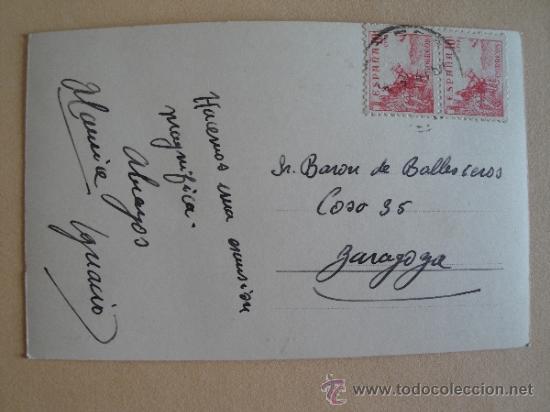 Hacemos una excursión
magnífica.
Abrazos
Ignacio
Sr. Baron de Ballesteros
Coso 35
Zaragoza
ESPAÑA
CORREOS
ESPAÑA
CORREOS
todocoleccion
www.todocoleccion.net